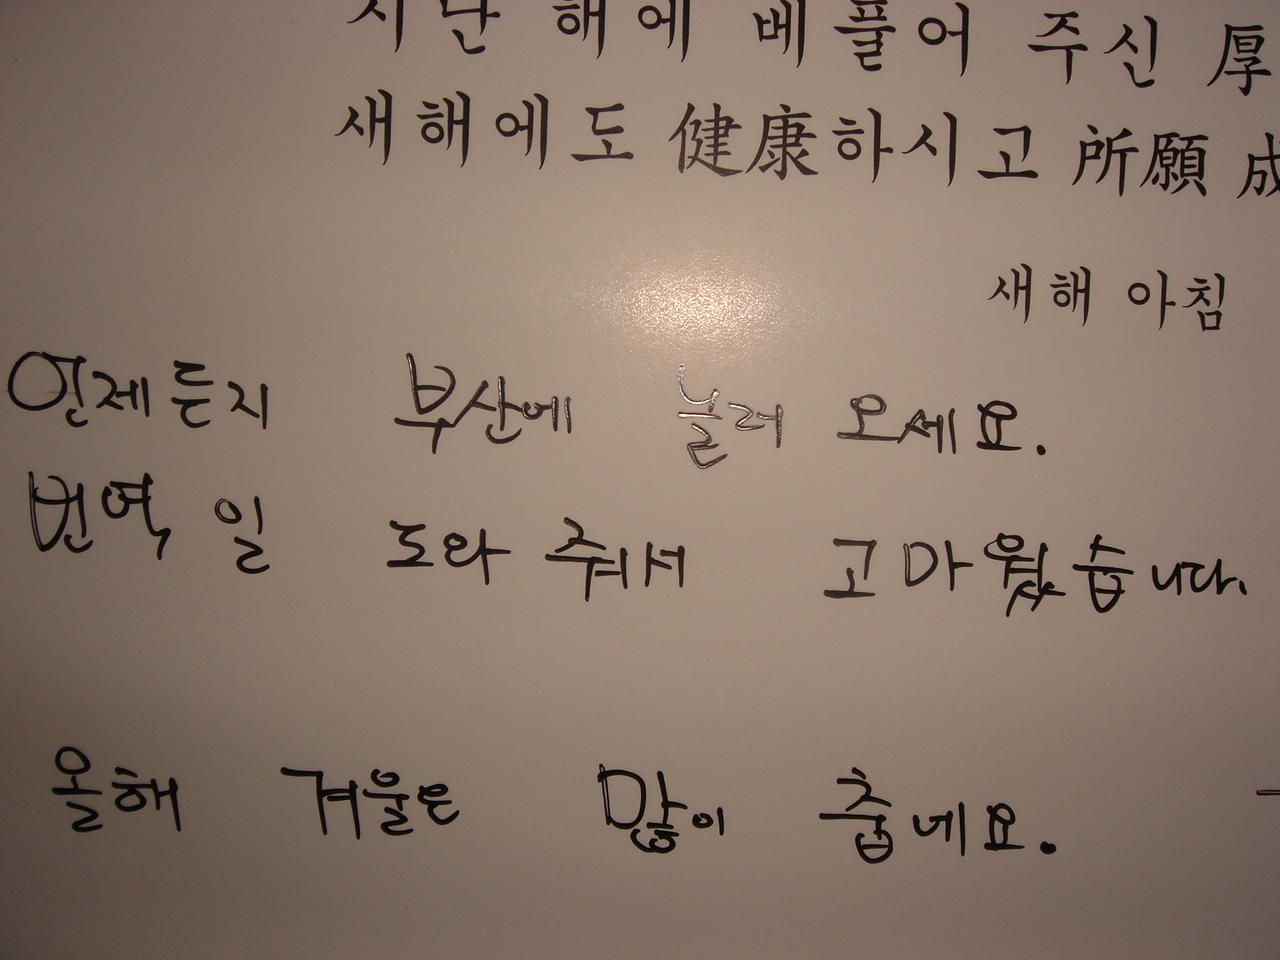 지난 해에 베풀어 주신 厚
새해에도 健康하시고 所願 成
새해 아침
언제든지 부산에 놀러 오세요.
번역 일 도와 줘서 고마웠습니다.
올해 겨울은 많이 춥네요.